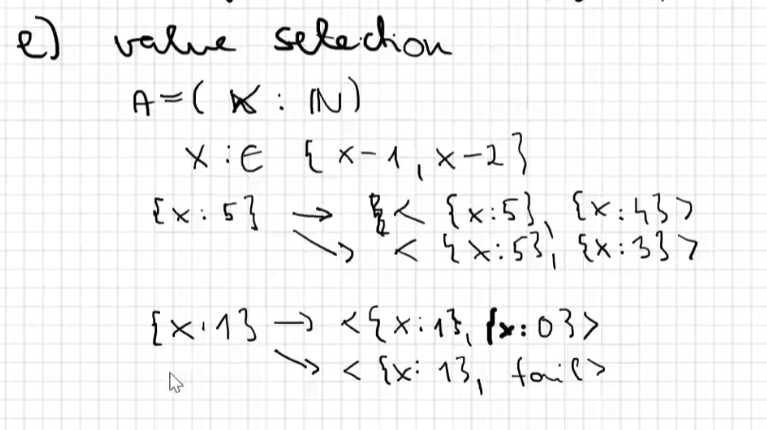 e) value selection
A=(x : ℕ)
x :∈ {x-1, x-2}
{x:5} → < {x:5}, {x:4}>
↘ < {x:5}, {x:3}>
{x:1} → <{x:1}, {x:0}>
↘ < {x:1}, fail>